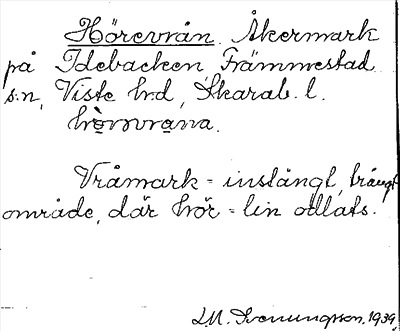 Hörevrån. Åkermark
på Idebacken Främmestad
s:n, Viste h:d, Skarab. l.
Vråmark = instängt, trångt
område, där hör = lin odlats.
L.M. Svenungsson. 1939.